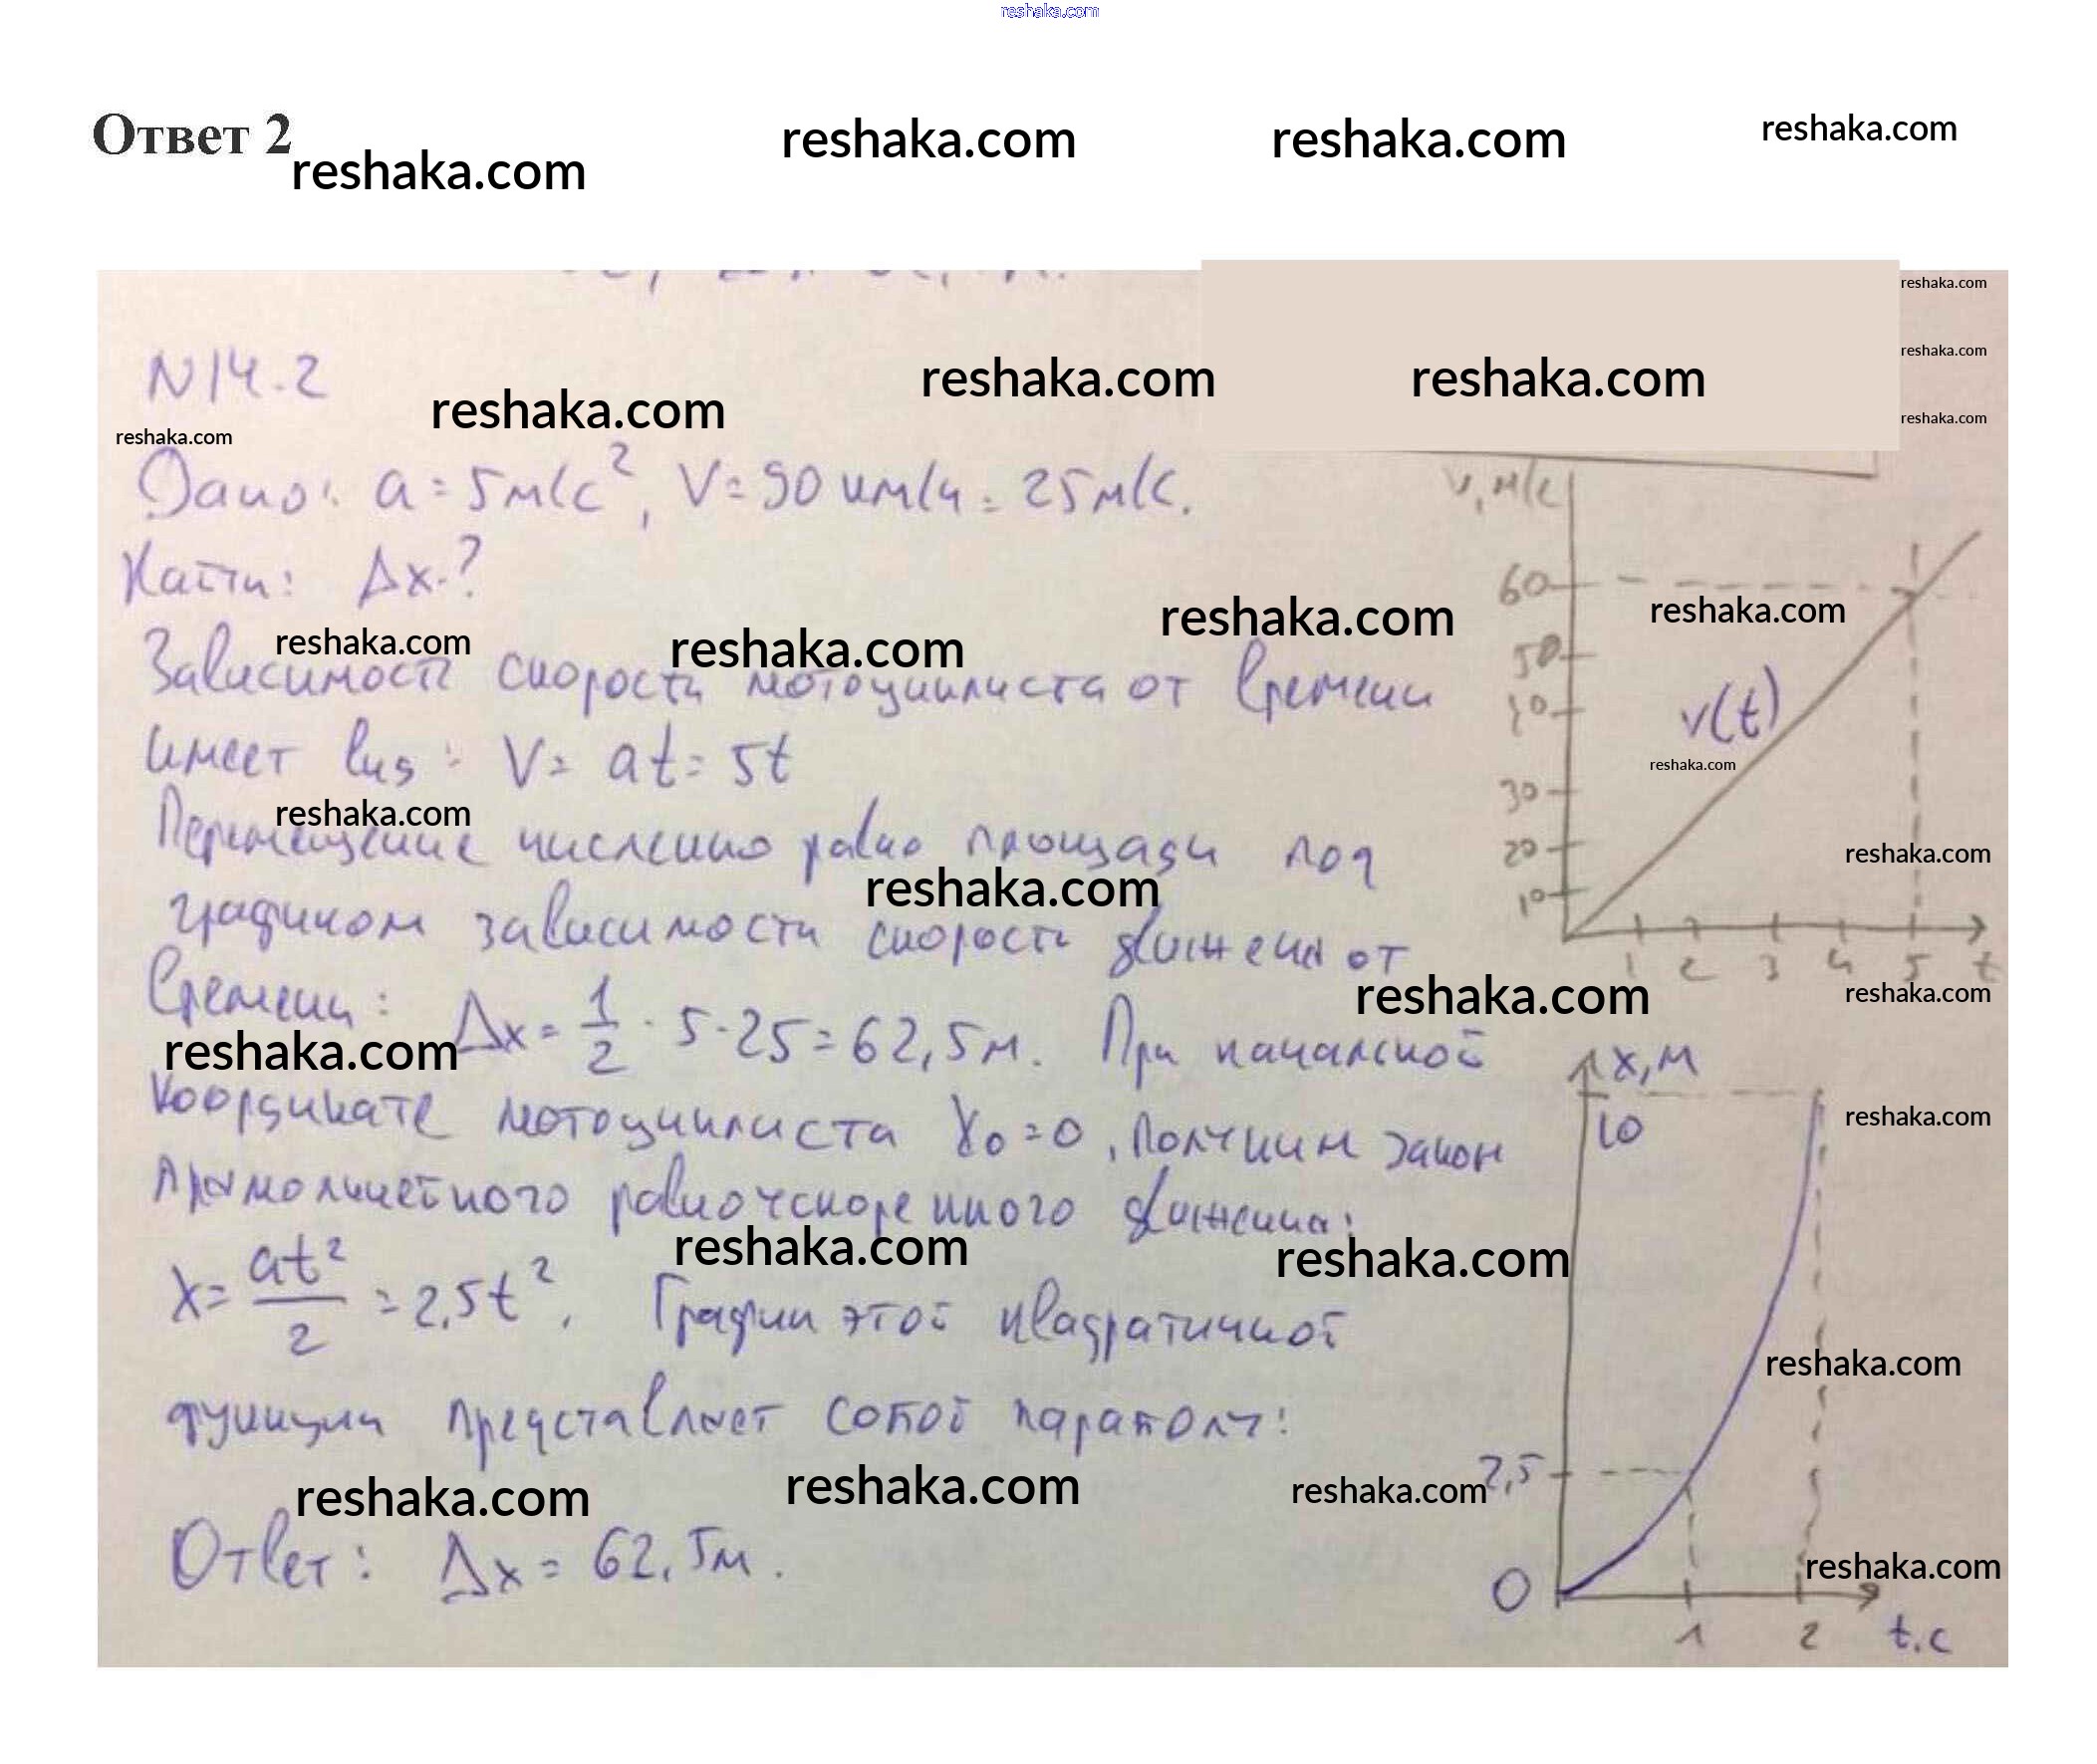 reshaka.com
Ответ 2
reshaka.com reshaka.com reshaka.com reshaka.com
reshaka.com
reshaka.com
reshaka.com
N14.2
reshaka.com reshaka.com reshaka.com
reshaka.com
Дано: a = 5м/с², V = 90 км/ч = 25 м/с.
Найти: Δx-?
reshaka.com reshaka.com reshaka.com reshaka.com
Зависимость скорости мотоциклиста от времени
имеет вид: V = at = 5t
reshaka.com
Перемещение численно равно площади под
reshaka.com
графиком зависимости скорости движения от
времени: Δx = 1/2 · 5 · 25 = 62,5м. При начальной
reshaka.com reshaka.com
координате мотоциклиста x₀ = 0, получим закон
прямолинейного равноускоренного движения:
reshaka.com reshaka.com
x = at²/2 = 2,5t². График этой квадратичной
функции представляет собой параболу:
reshaka.com reshaka.com reshaka.com
Ответ: Δx = 62,5м.
v, м/с
60
50
30
20
10
v(t)
reshaka.com
reshaka.com
1 2 3 4 5 t
reshaka.com
x, м
10
reshaka.com
reshaka.com
2,5
reshaka.com
0
1 2 t.c